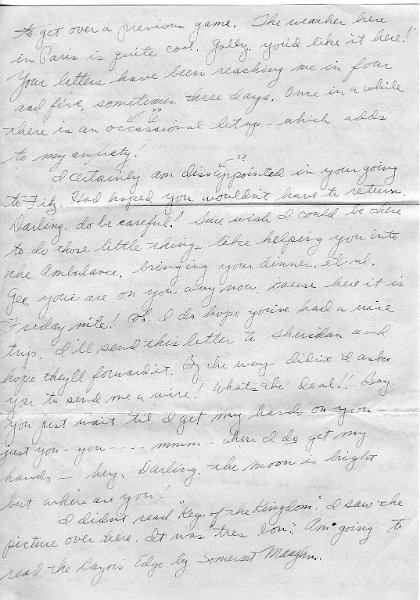 to get over a previous game. The weather here
in Paris is quite cool. Golly, you'd like it here!
Your letters have been reaching me in four
and five, sometimes three days. Once in a while
there is an occassional letup - which adds
to my anxiety!
I certainly am dissappointed in your going
to Fitz. Had hoped you wouldn't have to return
Darling, do be careful! Sure wish I could be there
to do those little things like helping you into
the Ambulance, bringing your dinner, et al.
Gee, your're on your way now cause here it is
Friday nite! I do hope you've had a nice
trip. I'll send this letter to Sheridan and
hope they'll forward it. By the way didn't I ask
you to send me a wire! What's the Deal!! Boy,
you just wait 'til I get my hands on you -
just you - you - - - - mmm - when I do get my
hands - hey, Darling, the moon is bright
but where are you.
I didn't read "Keys of the Kingdom." I saw the
picture over here. It was "tres bon". Am going to
read the Razors Edge by Somerset Maughm.